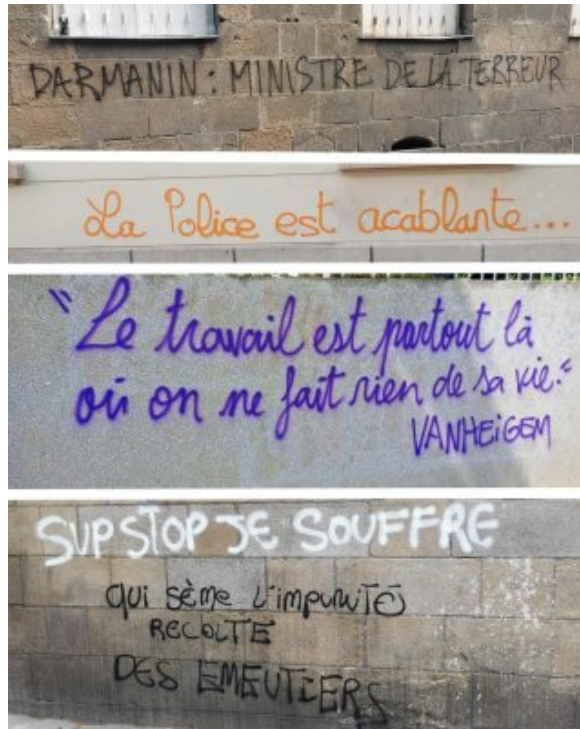 DARMANIN : MINISTRE DE LA TERREUR
La Police est acablante...
"Le travail est partout là
où on ne fait rien de sa vie."
VANHEIGEM
SUPSTOP JE SOUFFRE
qui sème l'impunité
RECOLTE
DES EMEUTIERS